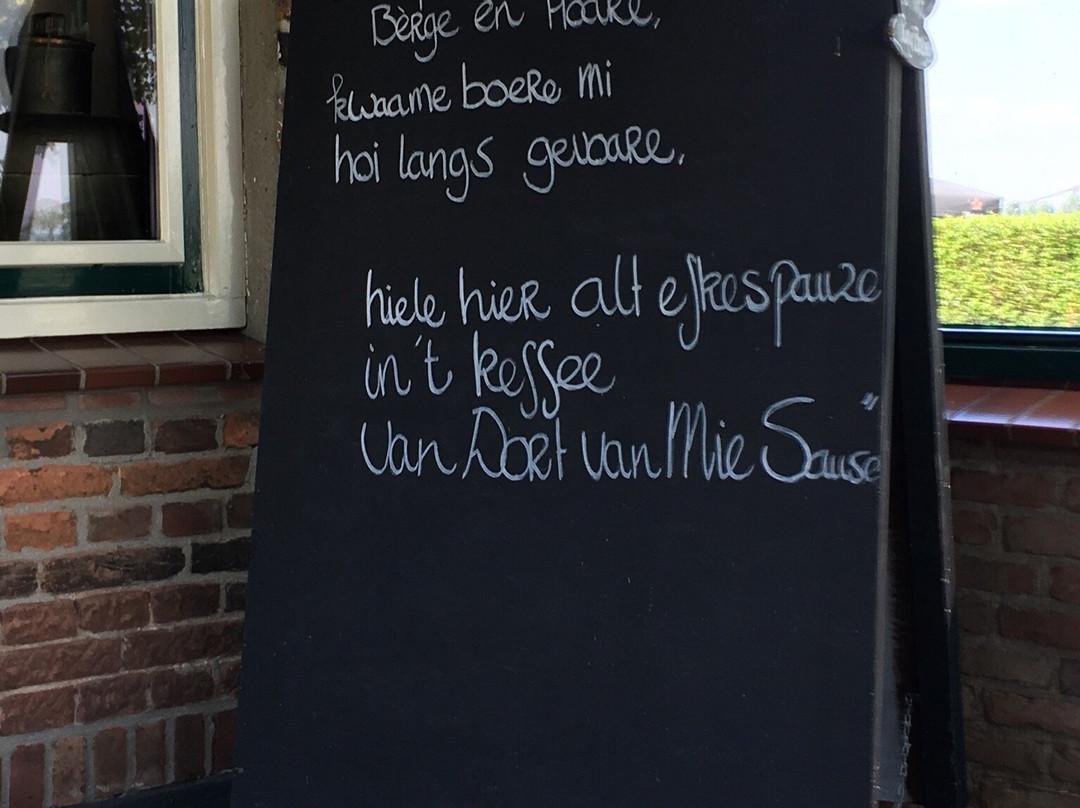 Bèrge en Haare,
kwaame boere mi
hoi langs gevaare,
hiele hier alt efkes pauze
in 't keffee
van Dort van Mie Sause"